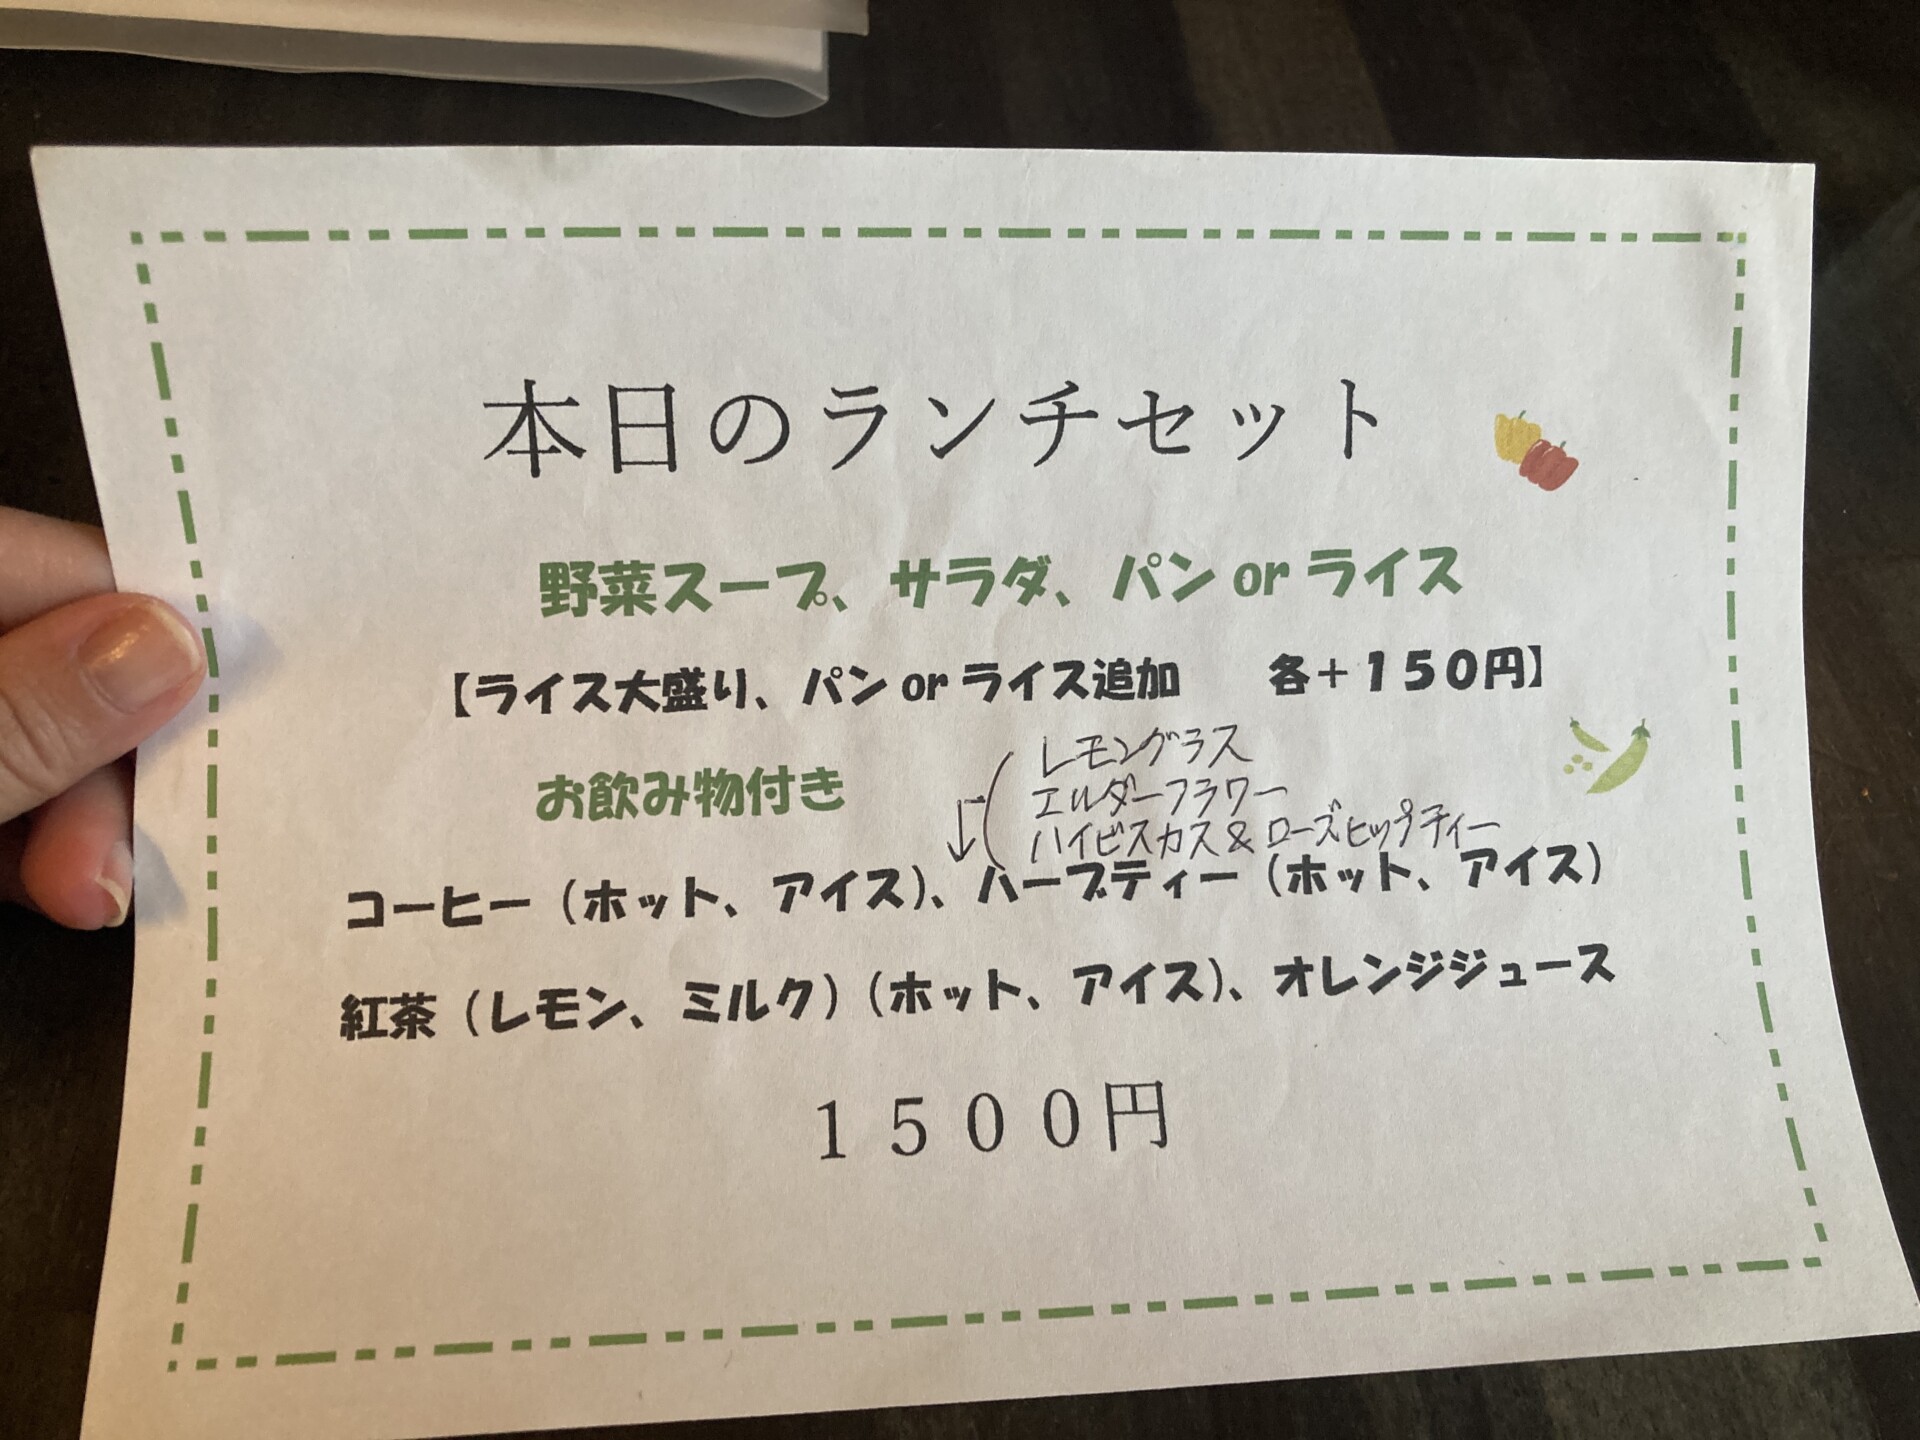 本日のランチセット
野菜スープ、サラダ、パン or ライス
【ライス大盛り、パン or ライス追加　　各＋１５０円】
お飲み物付き
レモングラス
エルダーフラワー
ハイビスカス＆ローズヒップティー
コーヒー（ホット、アイス）、ハーブティー（ホット、アイス）
紅茶（レモン、ミルク）（ホット、アイス）、オレンジジュース
１５００円